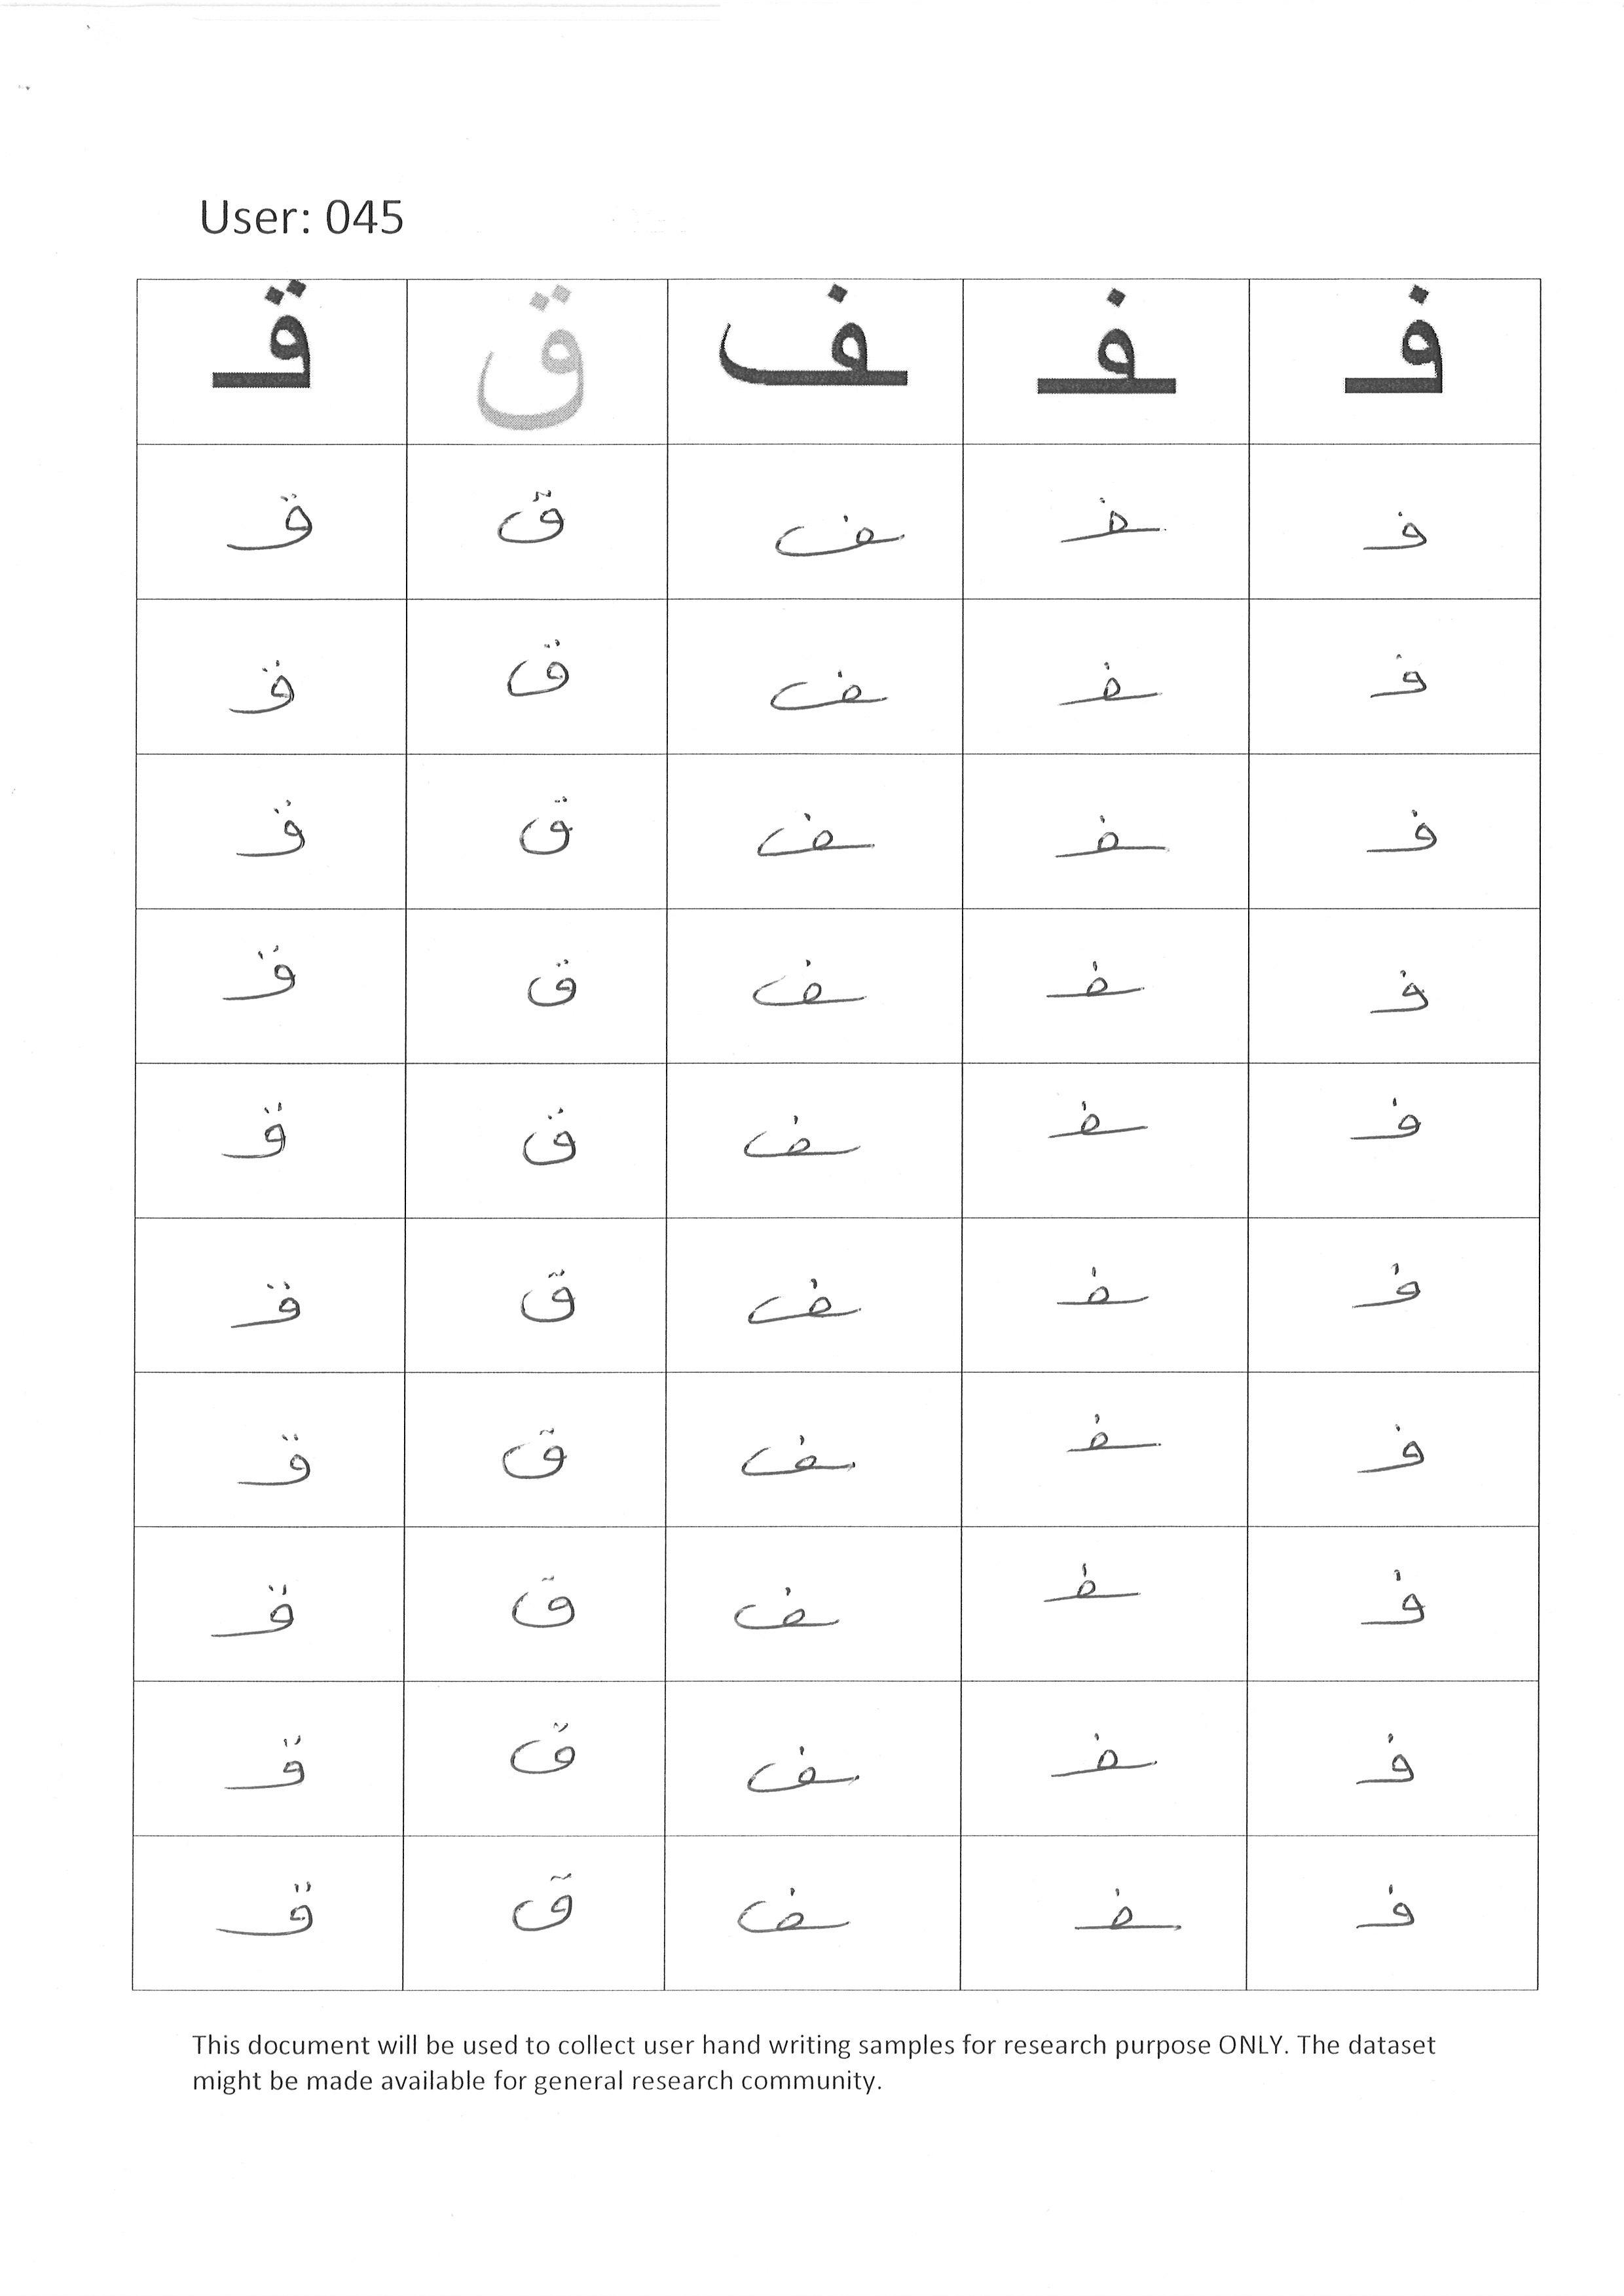 User: 045
فـ ـفـ ـف ق قـ
فـ ـفـ ـف ق قـ
فـ ـفـ ـف ق قـ
فـ ـفـ ـف ق قـ
فـ ـفـ ـف ق قـ
فـ ـفـ ـف ق قـ
فـ ـفـ ـف ق قـ
فـ ـفـ ـف ق قـ
فـ ـفـ ـف ق قـ
فـ ـفـ ـف ق قـ
فـ ـفـ ـف ق قـ
This document will be used to collect user hand writing samples for research purpose ONLY. The dataset
might be made available for general research community.